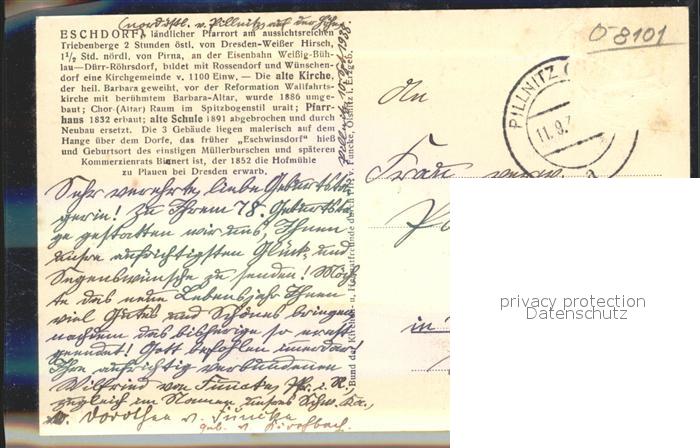 (nordöstl. v. Pillnitz auf der Höhe)
ESCHDORF, ländlicher Pfarrort am aussichtsreichen
Triebenberge 2 Stunden östl. von Dresden-Weißer Hirsch,
1½ Std. nördl. von Pirna, an der Eisenbahn Weißig-Büh-
lau—Dürr-Röhrsdorf, bildet mit Rossendorf und Wünschen-
dorf eine Kirchgemeinde v. 1100 Einw. — Die alte Kirche,
der heil. Barbara geweiht, vor der Reformation Wallfahrts-
kirche mit berühmtem Barbara-Altar, wurde 1886 umge-
baut; Chor (Altar) Raum im Spitzbogenstil uralt; Pfarr-
haus 1832 erbaut; alte Schule 1891 abgebrochen und durch
Neubau ersetzt. Die 3 Gebäude liegen malerisch auf dem
Hange über dem Dorfe, das früher „Eschwinsdorf" hieß
und Geburtsort des einstigen Müllerburschen und späteren
Kommerzienrats Bienert ist, der 1852 die Hofmühle
zu Plauen bei Dresden erwarb.
Sehr verehrte, liebe Geburtstä-
gerin! Zu Ihrem 78. Geburtsta-
ge gestatten wir uns, Ihnen
unsre aufrichtigsten Glück- und
Segenswünsche zu senden! Möch-
te das neue Lebensjahr Ihnen
viel Gutes und Schönes bringen,
nachdem das bisherige so ernst
geendet! Gott befohlen immerdar!
Ihre aufrichtig verbundenen
Wilfried von Funcke, Pf. i. R.,
zugleich im Namen unsrer
Dorothea v. Funcke
geb. v. Kirchbach.
Pillnitz
Bund der Kirchen- u. v. Funcke, Olbernhau i. Erzgeb.
O 8101
PILLNITZ
11.9.
An
Frau verw.
in
privacy protection
Datenschutz